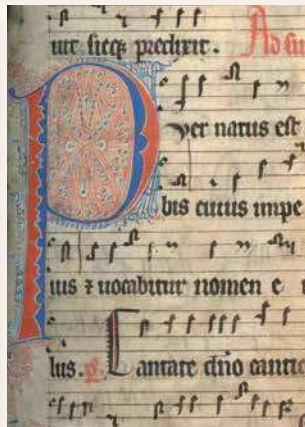 uit sicq; predixit. Ad su
Puer natus est
bis cuius impe
ius ⁊ uocabitur nomen e
lus. p̄. Cantate dn̄o cantic